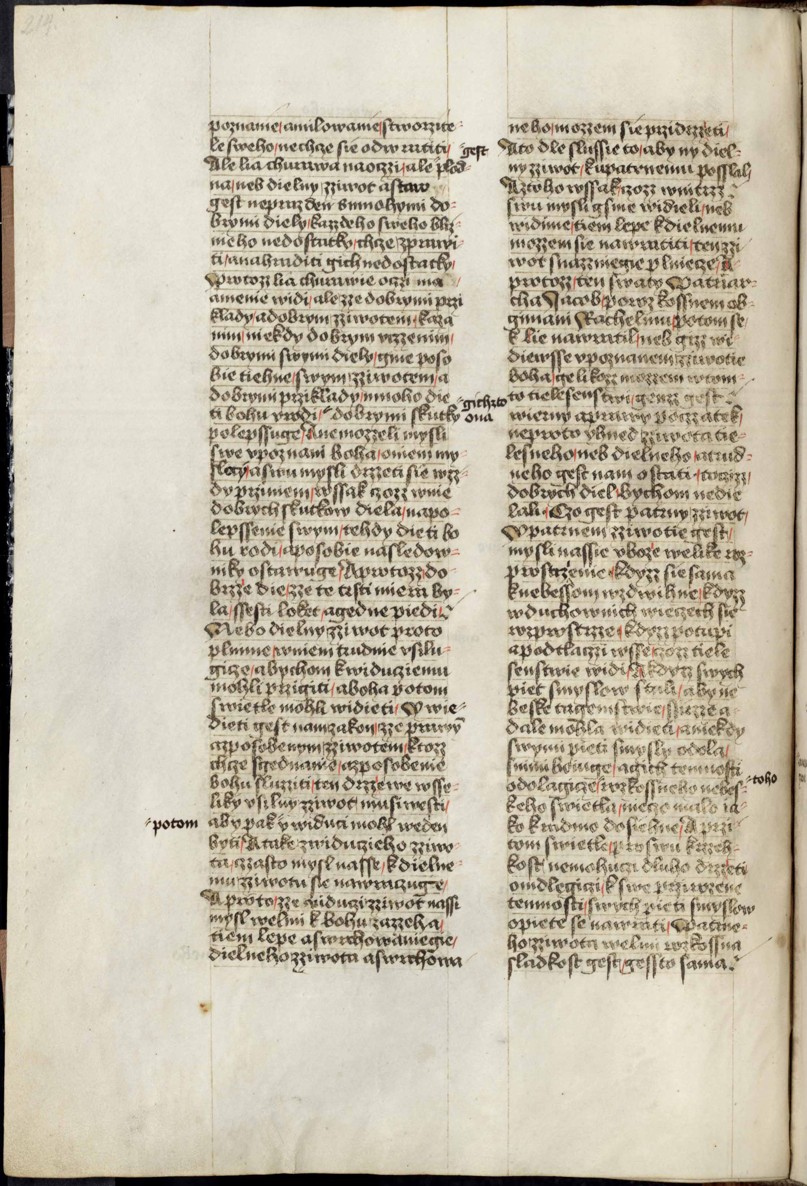 214.
poznanie / a milowanie / stworzite-
le sweho / nechze sie odwratiti /
Ale lia churawa naoczi / ale plod-
gest
na / neb dielny zziwot astaw
gest neprazden s mnohymi do-
brymi diely / kazzdeho sweho bliz-
nieho nedostatky / chze zprawi-
ti / a nahraditi gich nedostatky /
Protozz lia churawie oczi ma
a menie widi / ale zze dobrymi przi
klady / a dobrym zziwotem / kaza
nim / niekdy dobrym uczenim /
dobrymi swymi diely / gine poso
bie tiehne / swym zziwotem / a
dobrymi prziklady / mnoho die-
gichzto
ti bohu vrodi / dobrymi skutky
ona
polepssuge / A nemozzeli mysli
swe v poznani boha / oniem my-
sliti / a swu mysli drzeti sie wzz-
dy przi niem / wssak czozz wnie
dobrych skutkow diela / napo-
lepssenie swym / tehdy dieti bo
hu rodi / a po sobie nasledow-
niky ostawuge / A protozz do-
brzze die / zze te czsti miera by-
la / ssesti loket / a gedne piedi
Nebo dielny zziwot proto
plinie / w niem trudnie vsilu-
gicze / abychom k widuciemu
mohli przigiti / a boha potom
swietle mohli widieti / W wie-
dieti gest nam zakon / zze prawy
azposobenym zziwotem / ktozz
chze sgednanie / azposobenie
bohu sluzziti / ten drzewe wsse-
liky vsilny zziwot / musi westi /
-potom
aby pak k widuci mohl weden
byti / A take z widuczieho zziwo-
ta / czasto mysl nasse / k dielne-
mu zziwotu sie nawraczuge /
A proto / zze widuczi zziwot nassi
mysl welmi k bohu zazzeha /
tiem lepe a swrchowaniegie /
dielneho zziwota a swrchowa
nebo / mozzem sie przidrzeti /
A to dle slussie to / aby ny diel-
ny zziwot / k upatrnemu possilal
A z toho wssak / czozz wnitrz
swu mysli gsme widieli / neb
widime / tiem lepe k dielnemu
mozzem sie nawratiti / ten zzi
wot snazzniegie plniecze / A
protozz / ten swaty Patriar-
cha Jacob / po rozkossnem ob-
gimani Rachelinu / potom se /
k lie nawratil / neb gizz wi-
diewsse v poznanem zziwotie
boha / gelikozz mozzem w tom-
to tielesenstwi / genzz gest
wierny a prawy poczatek /
ne proto vhned zziwota tie-
lesneho / neb dielneho / a trud-
neho gest nam ostati / toczizz /
dobrych diel / bychom nedie
lali / Czo gest patrny zziwot /
W patrnem zziwotie gest /
mysli nassie v boze welike roz-
prostrzenie / kdyzz sie sama
k nebessom wzdwihne / kdyzz
w duchownich wieczech sie
rozprostrze / kdyzz potupi
a podtlaczi wsse czozz tiele
senstwie widi / A kdyzz swych
piet smyslow stuli / aby ne
beske tagemstwie / snazze a
dale mohla widieti / a niekdy
swymi pieti smysly odola /
snimi boiuge / a gich temnosti
-toho
odolagicze / rozkossneho nebes-
keho swietla / nieczo malo ia-
ko kradmo dosiehne / A przi
tom swietle / pro swu krzeh-
kost nemohuci dluho drzeti
omdlegiczi / k swe przirozene
temnosti / swych pieti smyslow
opiete se nawrati / Patrne-
ho zziwota welmi rozkossna
sladkost gest / gessto sama